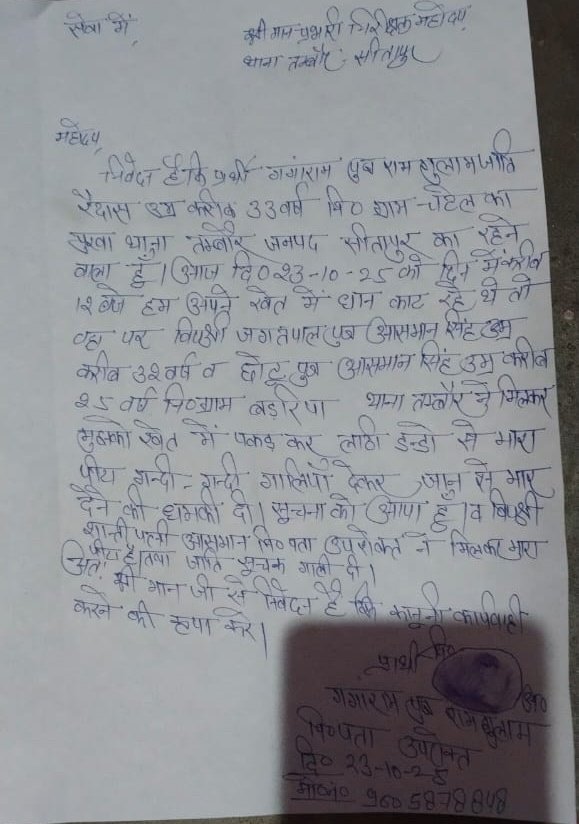 सेवा में,
श्री मान प्रभारी निरीक्षक महोदय,
थाना तम्बौर सीतापुर
महोदय,
निवेदन है कि प्रार्थी गंगाराम पुत्र राम गुलाम जाति
रैदास उम्र करीब 33 वर्ष नि० ग्राम का
पुरवा थाना तम्बौर जनपद सीतापुर का रहने
वाला हूँ। आज दि० 23-10-25 को दिन में करीब
12 बजे हम अपने खेत में धान काट रहे थे तो
वहा पर विपक्षी जगतपाल पुत्र आसमान सिंह उम्र
करीब 32 वर्ष व छोटू पुत्र आसमान सिंह उम्र करीब
25 वर्ष नि०ग्राम थाना तम्बौर ने मिलकर
मुझको खेत में पकड़ कर लाठी डन्डो से मारा
पीटा गन्दी-गन्दी गालियाँ देकर जान से मार
देने की धमकी दी। सूचना को आया हूँ। व विपक्षी
शान्ती पत्नी आसमान नि० पता उपरोक्त ने मिलकर मारा
पीटा है। तथा जाति सूचक गाली दी।
अतः श्री मान जी से निवेदन है कि कानूनी कार्यवाही
करने की कृपा करें।
प्रार्थी
गंगाराम पुत्र राम गुलाम
नि० पता उपरोक्त
दि० 23-10-25
मो०नं० 9605878848